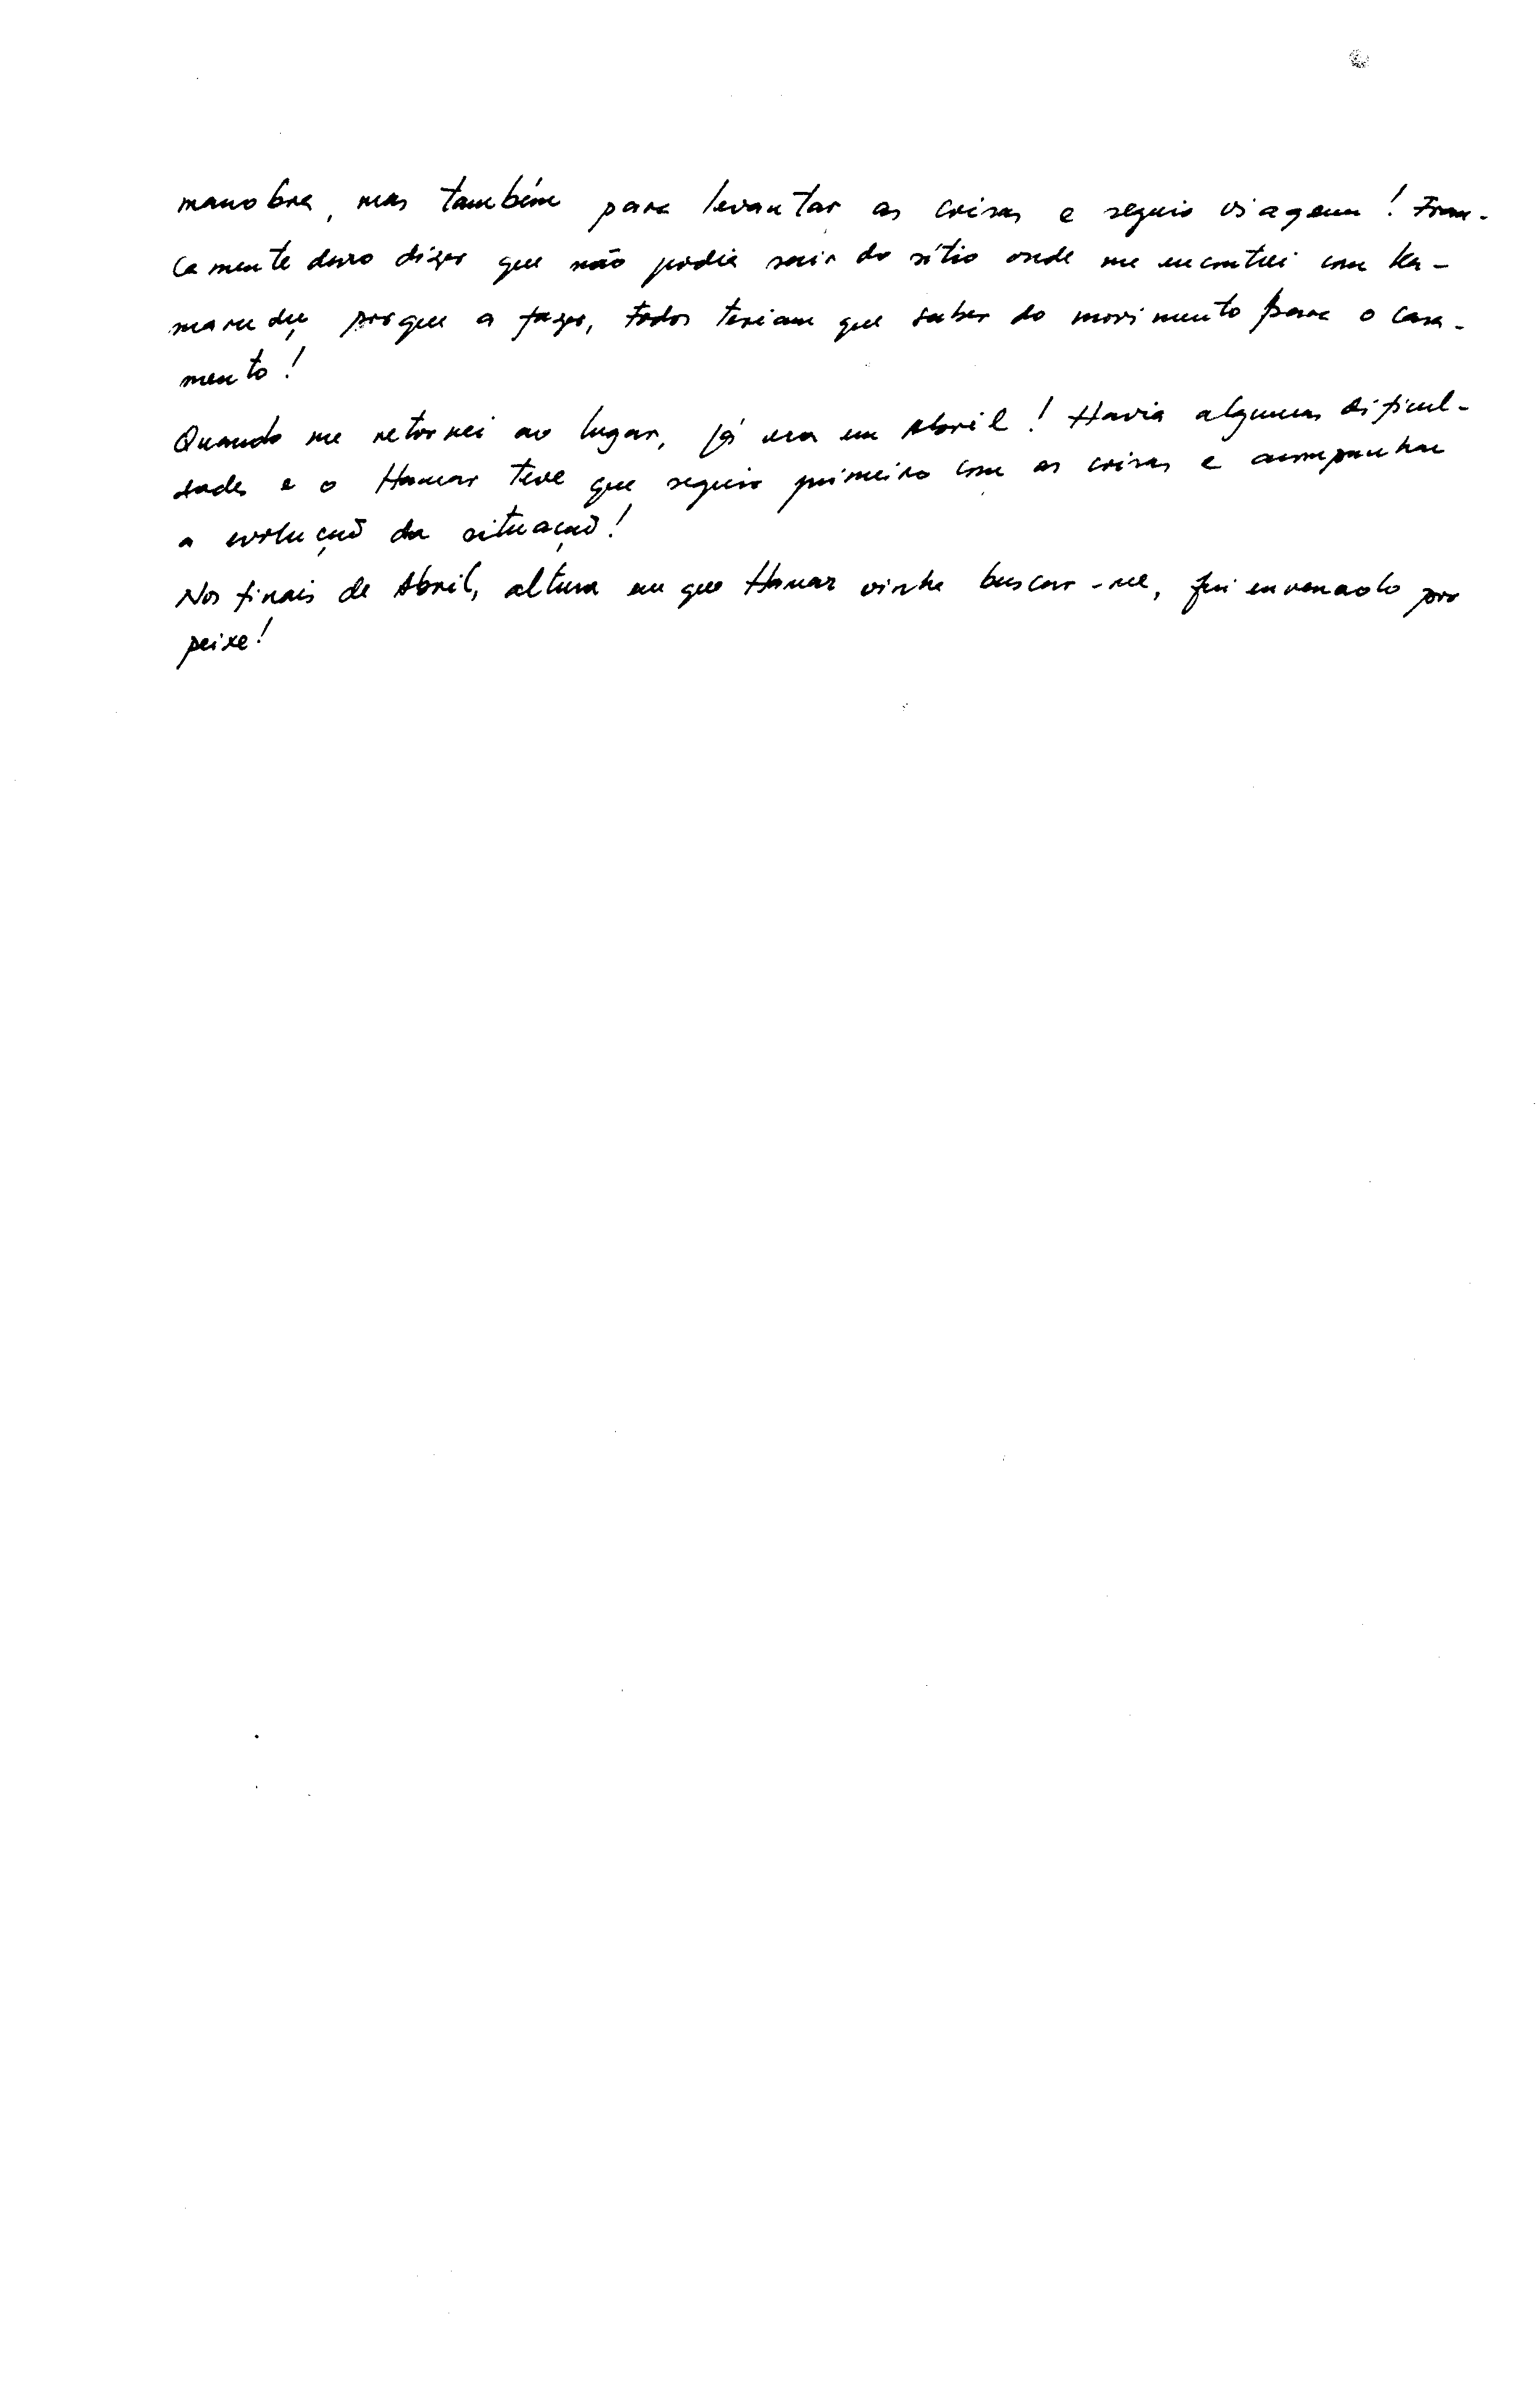 manobra, mas também para levantar as coisas e seguir viagem! Fran-
camente devo dizer que não podia sair do sítio onde me encontrei com Ka-
marudu, porque a fazer, todos teriam que saber do movimento para o casa-
mento!
Quando me retornei ao lugar, já era em Abril! Havia algumas dificul-
dades e o Hamar teve que seguir primeiro com as coisas e acompanhar
a evolução da situação!
Nos finais de Abril, altura em que Hamar vinha buscar-me, fui envenado por
peixe!